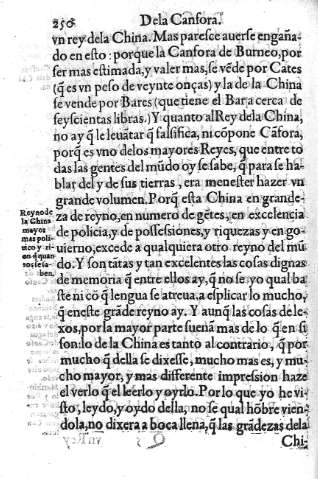 256 De la Canfora.
vn rey de la China. Mas paresce auerse engaña-
do en esto : porque la Canfora de Burneo, por
ser mas estimada, y valer mas, se vẽde por Cates
(q̃ es vn peso de veynte onças) y la de la China
se vende por Bares (que tiene el Bar a cerca de
seyscientas libras.) Y quanto al Rey de la China,
no ay q̃ le leuãtar q̃ falsifica, ni cõpone Cãfora,
porq̃ es vno de los mayores Reyes, que entre to
das las gentes del mũdo oy se sabe, q̃ para se ha-
blar del y de sus tierras, era menester hazer vn
grande volumen. Porq̃ esta China en grande-
za de reyno, en numero de gẽtes, en excelencia
de policia, y de possessiones, y riquezas y en go-
uierno, excede a qualquiera otro reyno del mũ
do. Y son tãtas y tan excelentes las cosas dignas
de memoria q̃ entre ellos ay, q̃ no se yo qual ba
ste ni cõ q̃ lengua se atreua, a esplicar lo mucho,
q̃ en este grãde reyno ay. Y aunq̃ las cosas de le-
xos, por la mayor parte suenã mas de lo q̃ en si
son: lo de la China es tanto al contrario, q̃ por
mucho q̃ della se dixesse, mucho mas es, y mu-
cho mayor, y mas differente impression haze
el verlo q̃ el leerlo y oyrlo. Por lo que yo he vi-
sto, leydo, y oydo della, no se qual hõbre vien-
dola, no dixera a boca llena, q̃ las grãdezas de la
Chi-
Reyno de
la China
mayor
mas poli-
tico y ri-
co q̃ quan-
tos se sa-
ben.